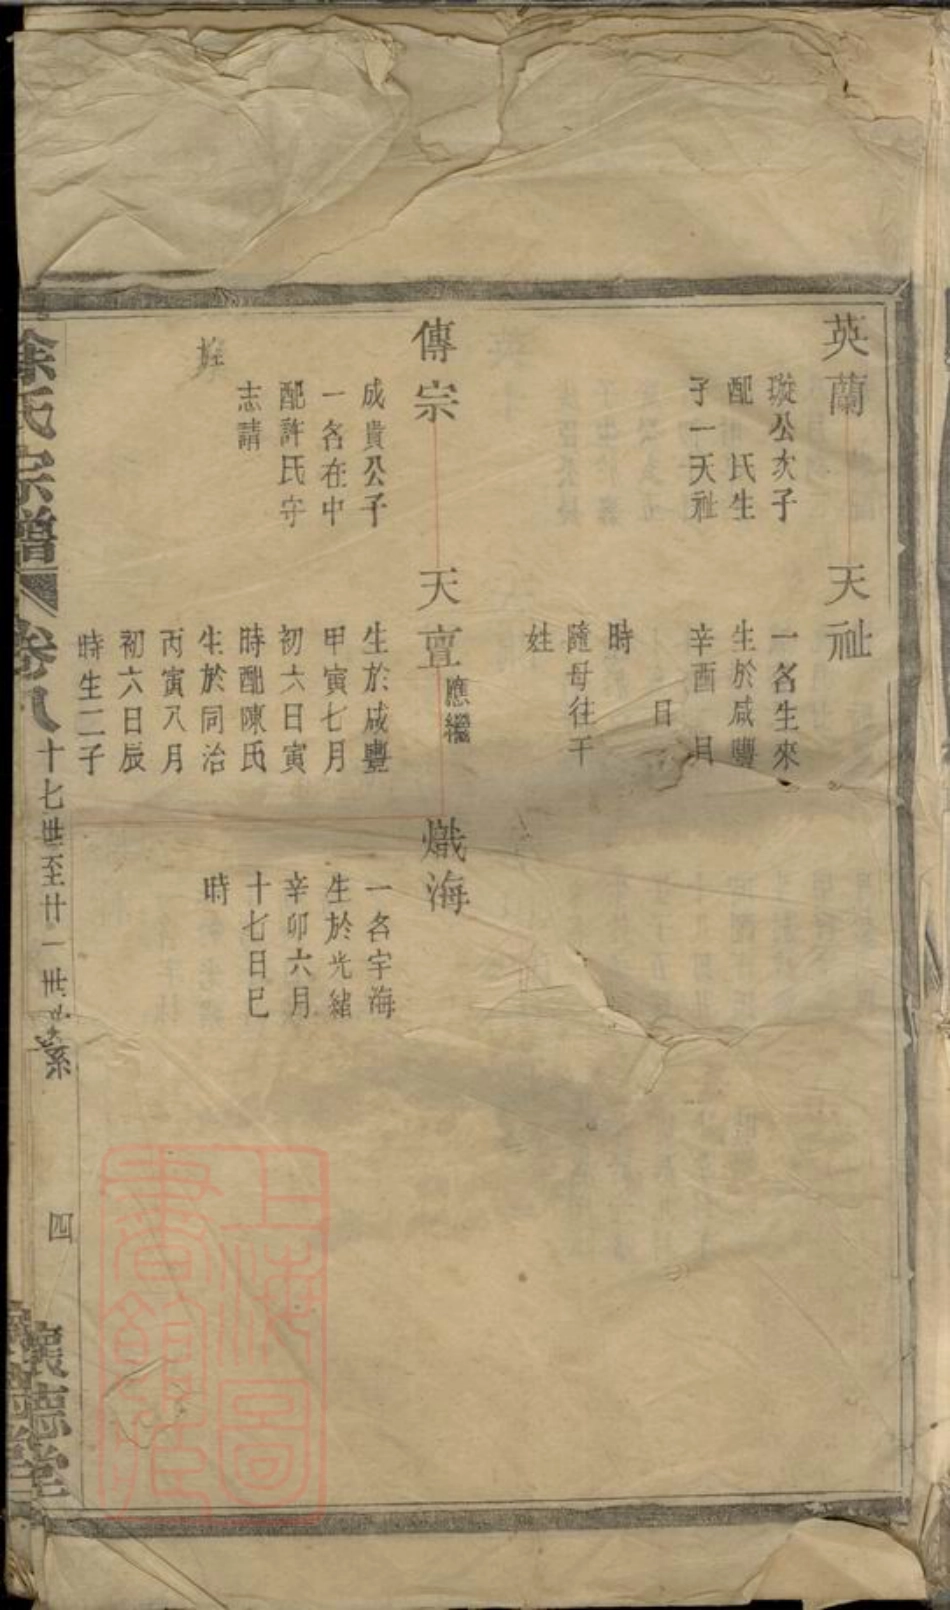 英蘭
璇公次子
配 氏生
子一天祉
天祉
一名生來
生於咸豐
辛酉 月
日
時
隨母往干
姓
傳宗
成貴公子
一名在中
配許氏守
志請
旌
天亶應繼
生於咸豐
甲寅七月
初六日寅
時配陳氏
生於同治
丙寅八月
初六日辰
時生二子
熾海
一名宇海
生於光緒
辛卯六月
十七日巳
時
徐氏宗譜
卷八
十七世至廿一世世系
四
懷德堂
上海圖書館藏